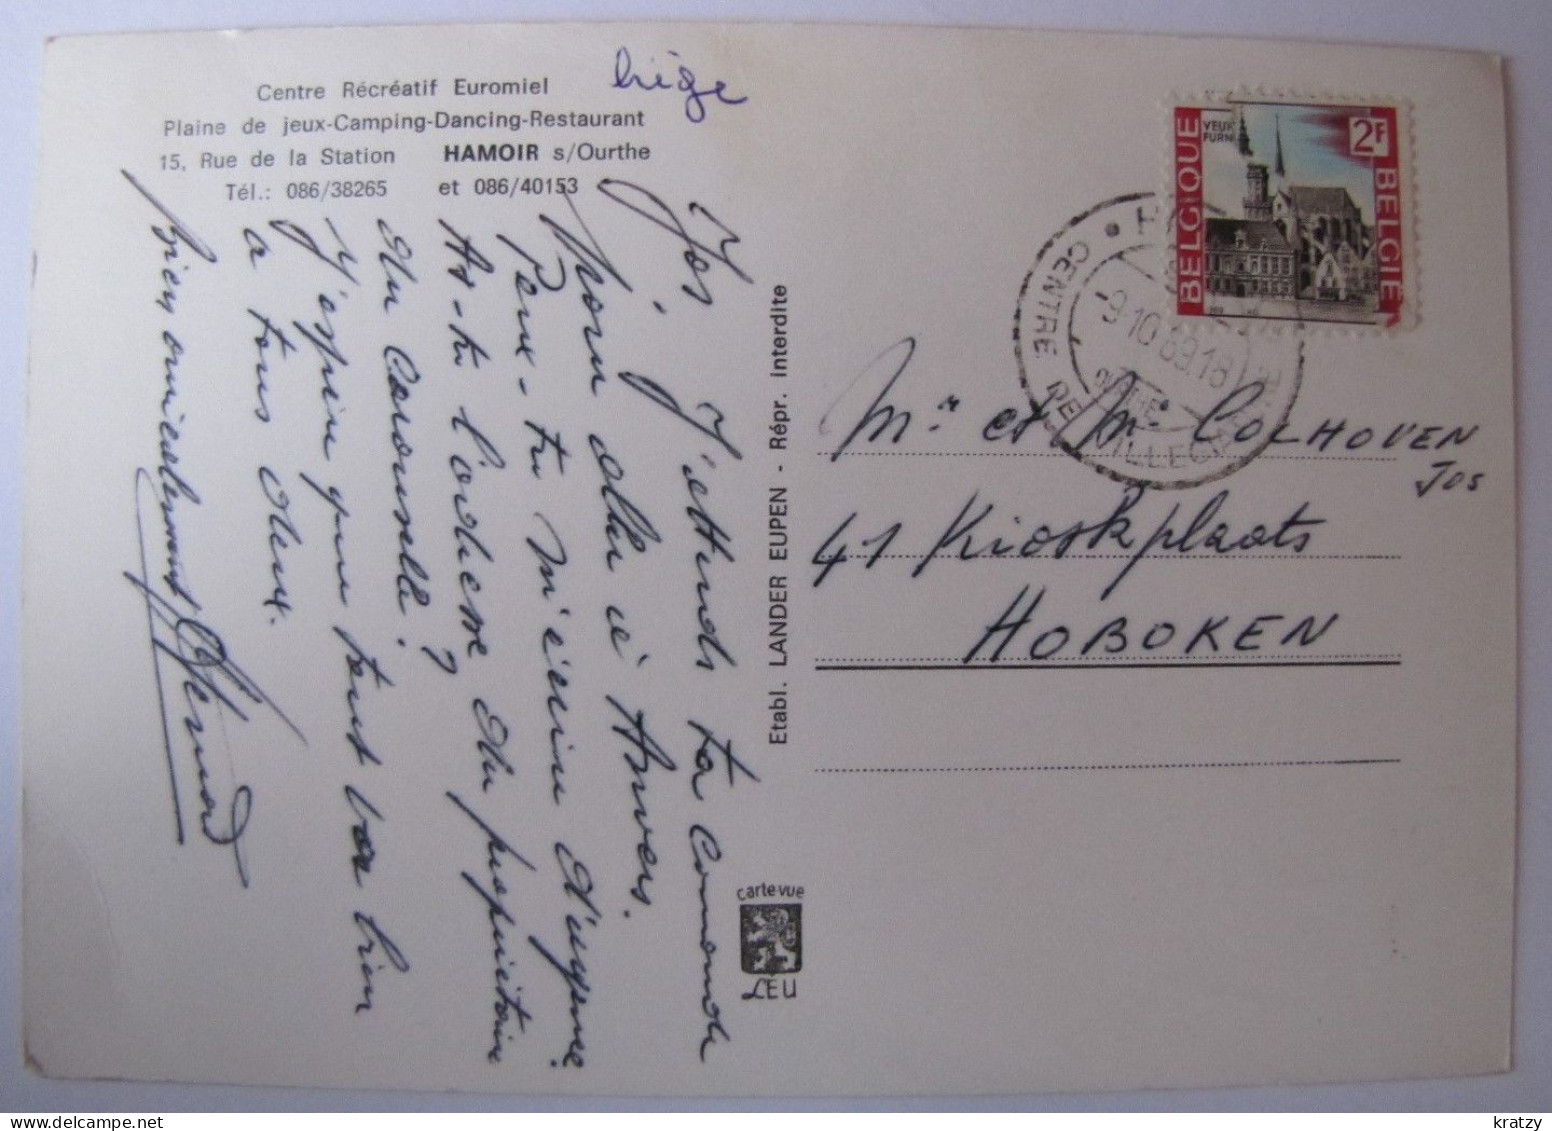 Centre Récréatif Euromiel
Liége
Plaine de jeux-Camping-Dancing-Restaurant
15, Rue de la Station HAMOIR s/Ourthe
Tél.: 086/38265 et 086/40153
Jos J'attends ta commande
Peux-tu m'écrire d'urgence
As-tu l'adresse du propriétaire
du carouselle?
J'espère que tout va bien
a tous deux.
bien amicalement
Etabl. LANDER EUPEN - Répr. Interdite
carte vue
LEU
VEUR
FURN
2F
BELGIQUE BELGIË
CENTRE DE VILLEGIATURE
9-10 69.18
OURTHE
Mr et Me COLHOVEN
Jos
41 Kioskplaats
HOBOKEN
kratzy